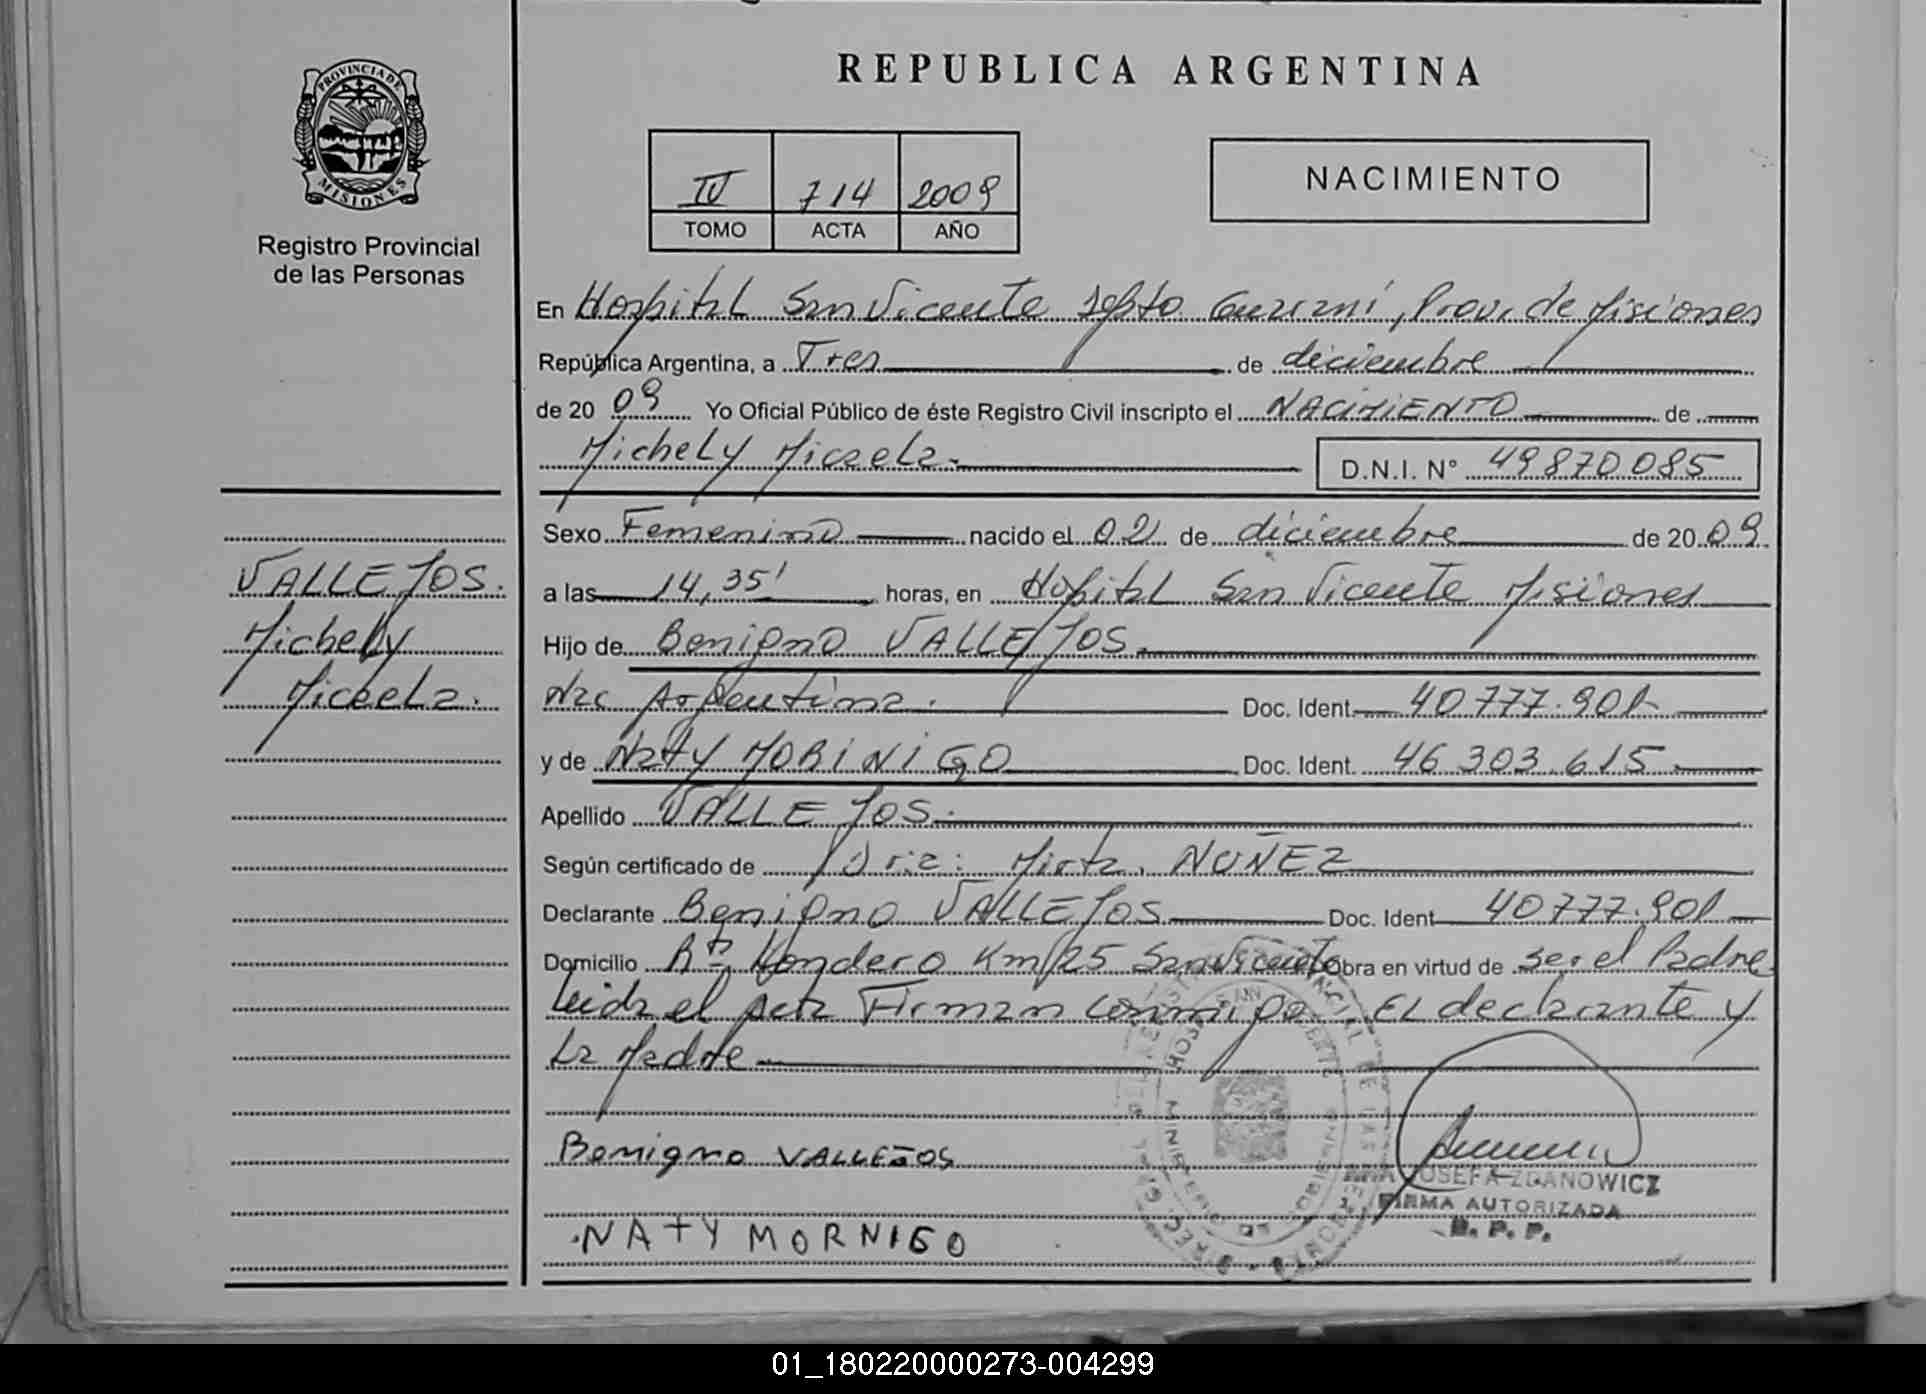 REPUBLICA ARGENTINA
PROVINCIA DE
MISIONES
Registro Provincial
de las Personas
IV 714 2009
TOMO ACTA AÑO
NACIMIENTO
En Hospital San Vicente Dpto Guaraní, Prov. de Misiones
República Argentina, a Tres de diciembre
de 20 09 Yo Oficial Público de éste Registro Civil inscripto el NACIMIENTO de
Michely Micaela.
D.N.I. N° 49870085
Sexo Femenino nacido el 02 de diciembre de 20 09
a las 14,35' horas, en Hospital San Vicente Misiones
Hijo de Benigno VALLEJOS.
Nac Argentina. Doc. Ident. 40777.901
y de Naty MORINIGO Doc. Ident. 46 303.615.
Apellido VALLEJOS.
Según certificado de Mirta. NUÑEZ
Declarante Benigno VALLEJOS Doc. Ident 40777.901
Domicilio Km 25 San Vicente Obra en virtud de ser el Padre
Leida el acta Firman conmigo EL declarante y
La Madre
Benigno VALLEJOS
NATY MORNIGO
JOSEFA ZDANOWICZ
FIRMA AUTORIZADA
R. P. P.
VALLEJOS.
Michely
Micaela.
01_180220000273-004299